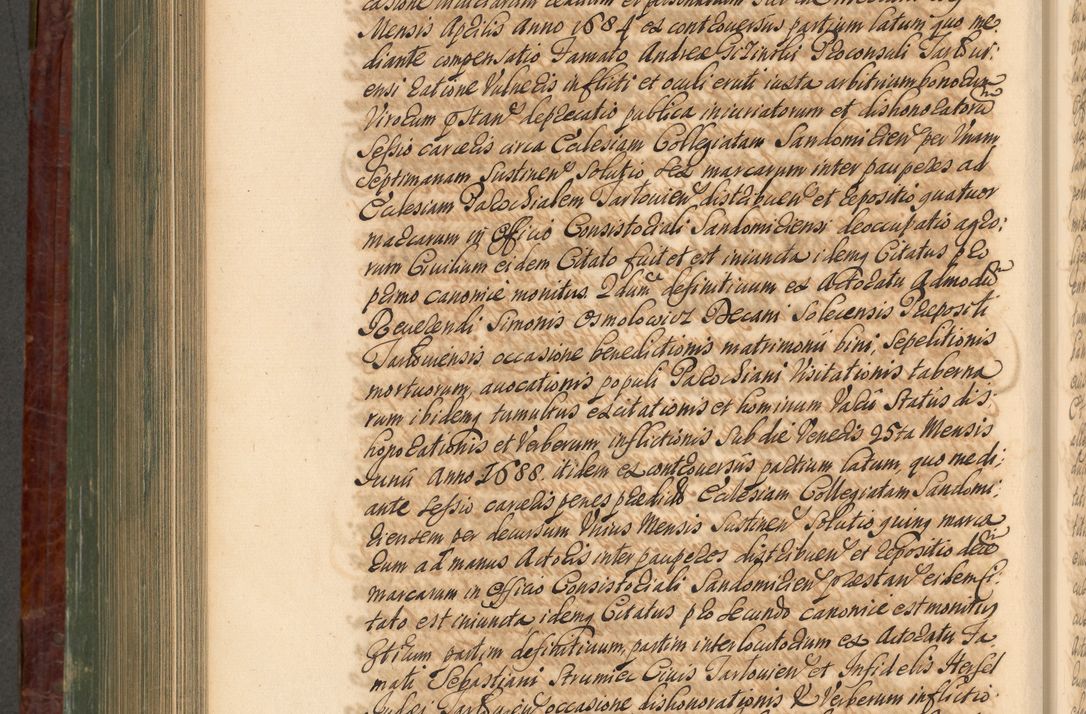 Mensis Aprilis Anno 1684 ex controversiis partium latum quo me
diante compensatio Famato Andreae Proconsuli Tarlovi:
ensi ratione Vulneris infliti et oculi eruti iuxta arbitrium bonorum
Virorum pstan deprecatio publica iniuriatorum et dishonoratoru
Sessio carceris circa Ecclesiam Collegiatam Sandomirien per Unam
Septimanam Sustinen Solutio Sex marcarum inter pauperes ad
Ecclesiam Parochialem Tarlovien distribuen et repositio quatuor
marcarum in Officio Consistoriali Sandomiriensi deoccupatio agro:
rum Civilium eidem Citato fuit et est iniuncta idemq Citatus pro
primo canonice monitus. 2dum definitivum ex Actoratu Admodu
Reverendi Simonis Osmolowicz Decani Solecensis Praepositi
Tarloviensis occasione benedictionis matrimonii bini, Sepelitionis
mortuorum, avocationis populi Parochiani Visitationis taberna
rum ibidemq tumultus excitationis et hominum Varii Status dis:
honorationis et Verberum inflictionis Sub die Veneris 25ta Mensis
Junii Anno 1688. itidem ex controversiis partium latum, quo medi:
ante Sessio carceris penes praedict Ecclesiam Collegiatam Sandomi:
riensem per decursum Unius Mensis Sustinen Solutio quinq marca
rum ad manus Actoris inter pauperes distribuen et repositio dece
marcarum in Officio Consistoriali Sandomirien praestan eidem Ci:
tato est iniuncta idemq Citatus pro secundo canonice est monitus
3tium partim definitivum, partim interlocutorium ex Actoratu Fa
mati Sebastiani Strumie Civis Tarlovien et Infidelis Herszel
Judaei Tarlovien occasione dishonorationis & Verberum inflictio: